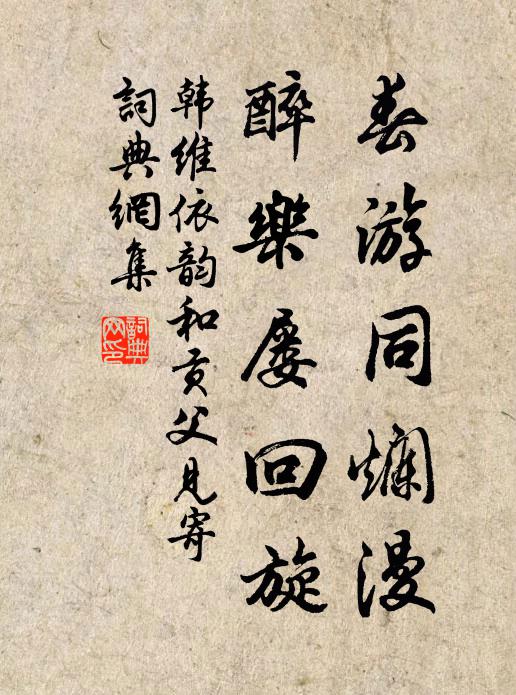 春游同爛漫
醉樂屡回旋
韩維依韵和贡父見寄
詞典網集
詞典網印